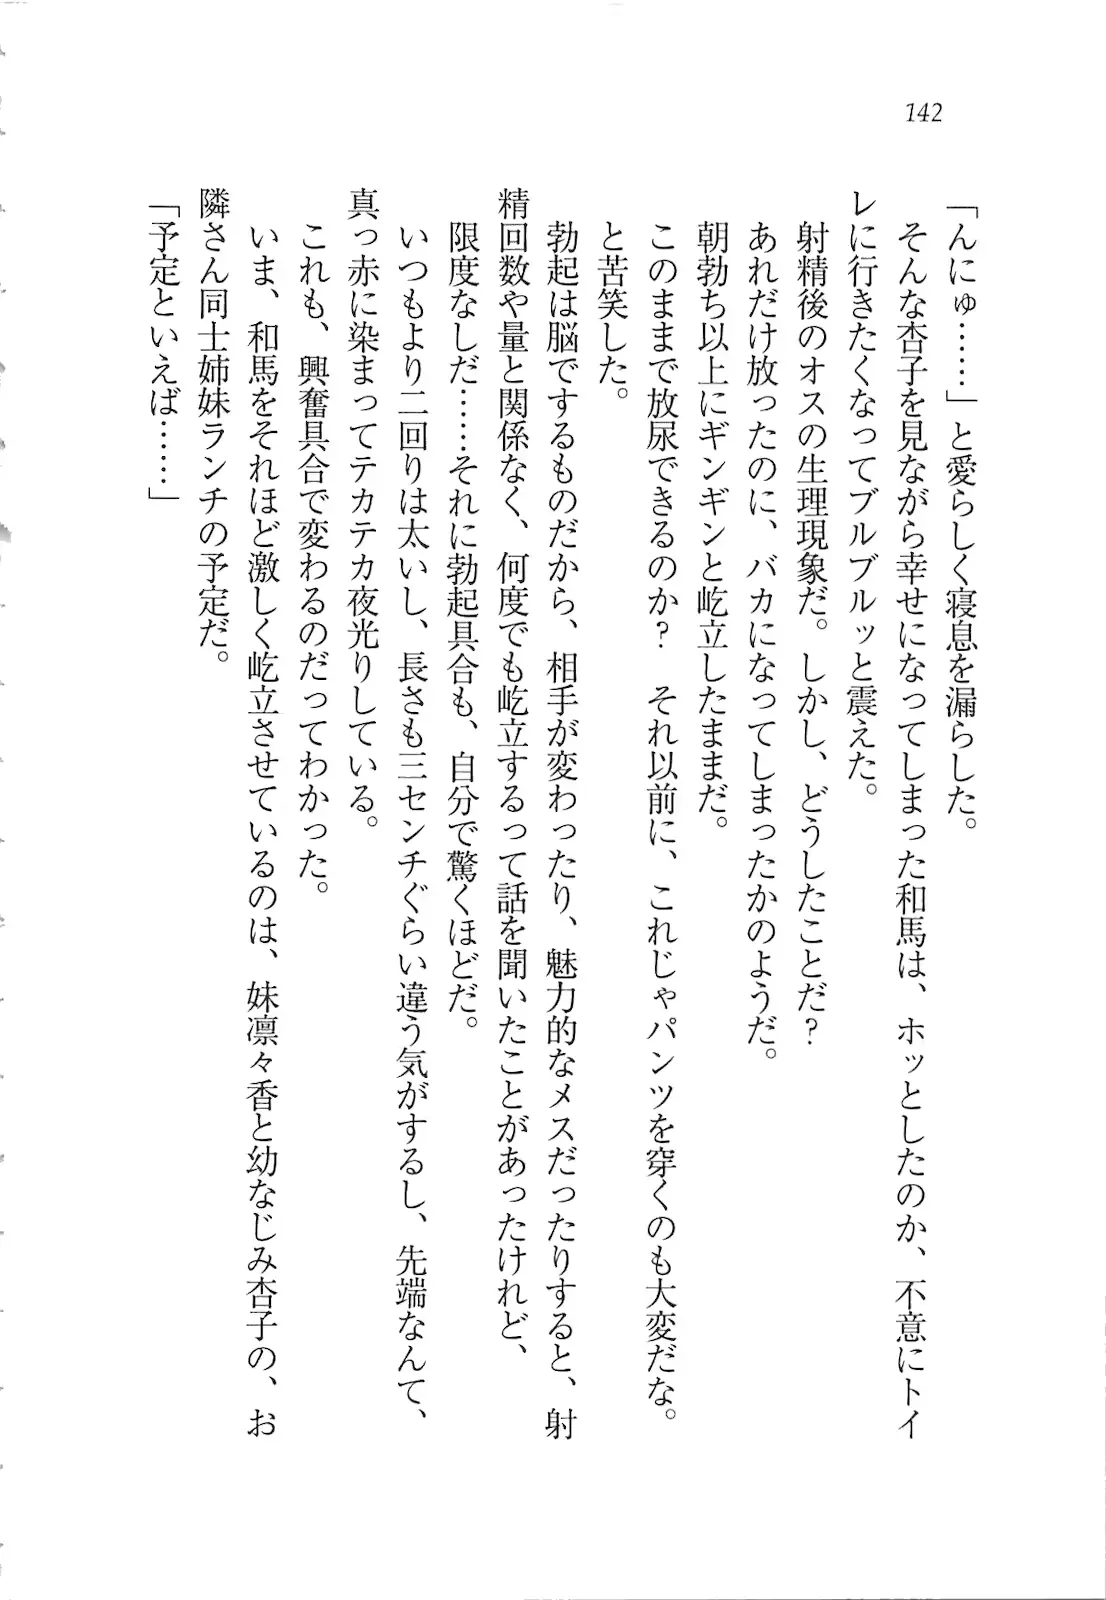 142
「んにゅ……」と愛らしく寝息を漏らした。
そんな杏子を見ながら幸せになってしまった和馬は、ホッとしたのか、不意にトイ
レに行きたくなってブルブルッと震えた。
射精後のオスの生理現象だ。しかし、どうしたことだ?
あれだけ放ったのに、バカになってしまったかのようだ。
朝勃ち以上にギンギンと屹立したままだ。
このままで放尿できるのか? それ以前に、これじゃパンツを穿くのも大変だな。
と苦笑した。
勃起は脳でするものだから、相手が変わったり、魅力的なメスだったりすると、射
精回数や量と関係なく、何度でも屹立するって話を聞いたことがあったけれど、
限度なしだ……それに勃起具合も、自分で驚くほどだ。
いつもより二回りは太いし、長さも三センチぐらい違う気がするし、先端なんて、
真っ赤に染まってテカテカ夜光りしている。
これも、興奮具合で変わるのだってわかった。
いま、和馬をそれほど激しく屹立させているのは、妹凛々香と幼なじみ杏子の、お
隣さん同士姉妹ランチの予定だ。
「予定といえば……」